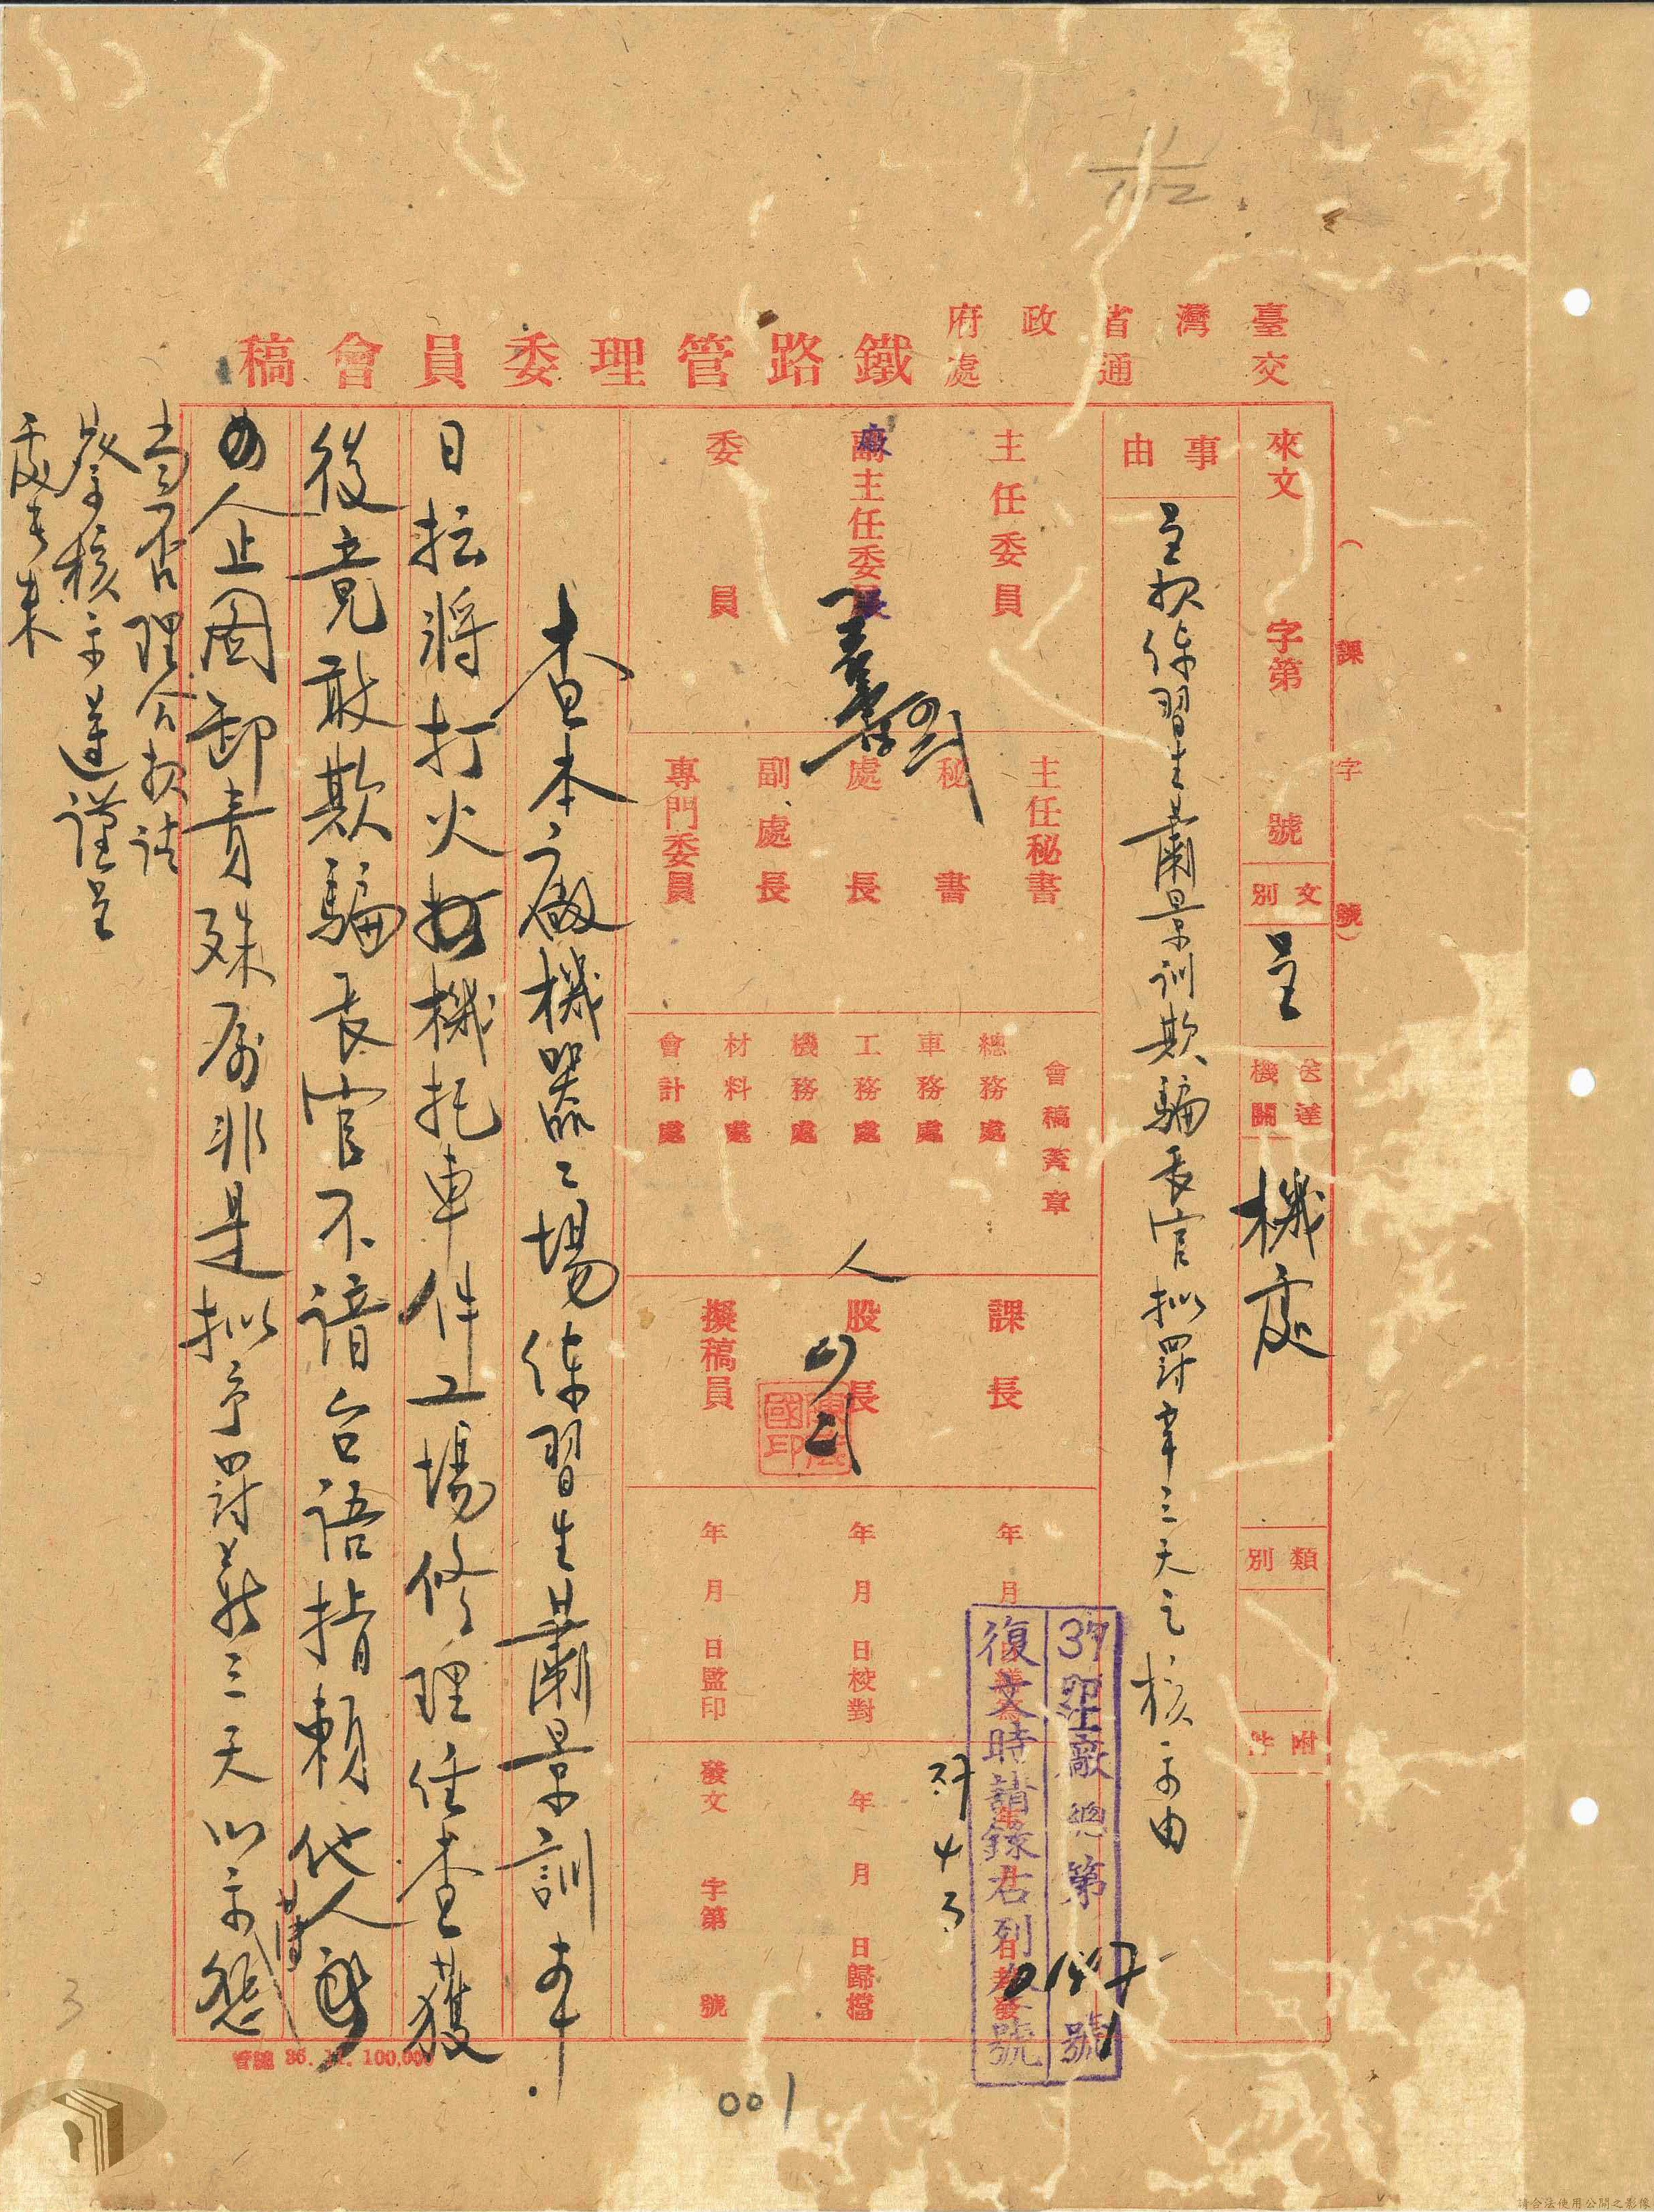 臺灣省政府
交通處
鐵路管理委員會稿
(課字號)
來文 字第 號
文別 呈
送達機關 機處
類別
附件
事由 呈報練習生蕭景訓欺騙長官擬罰辛三天之核示由
主任委員
廠主任委員長
委員
主任秘書
秘書
處長
副處長
專門委員
會稿蓋章
總務處
車務處
工務處
機務處
材料處
會計處
課長
股長
擬稿員
年月日
年月日校對
年月日監印
年月日歸檔
發文 字第 號
37 廠總第 號
復文時請錄右列 號
37 4 3
查本廠機器工場練習生蕭景訓本
日擅將打火機托車件工場修理任查獲
後竟敢欺騙長官不諳台語指賴他人
人止圖卸責殊屬非是擬予罰薪三天以示懲
當否理合報請
鑒核示遵謹呈
處長朱
3
001
請合法使用公開之影像